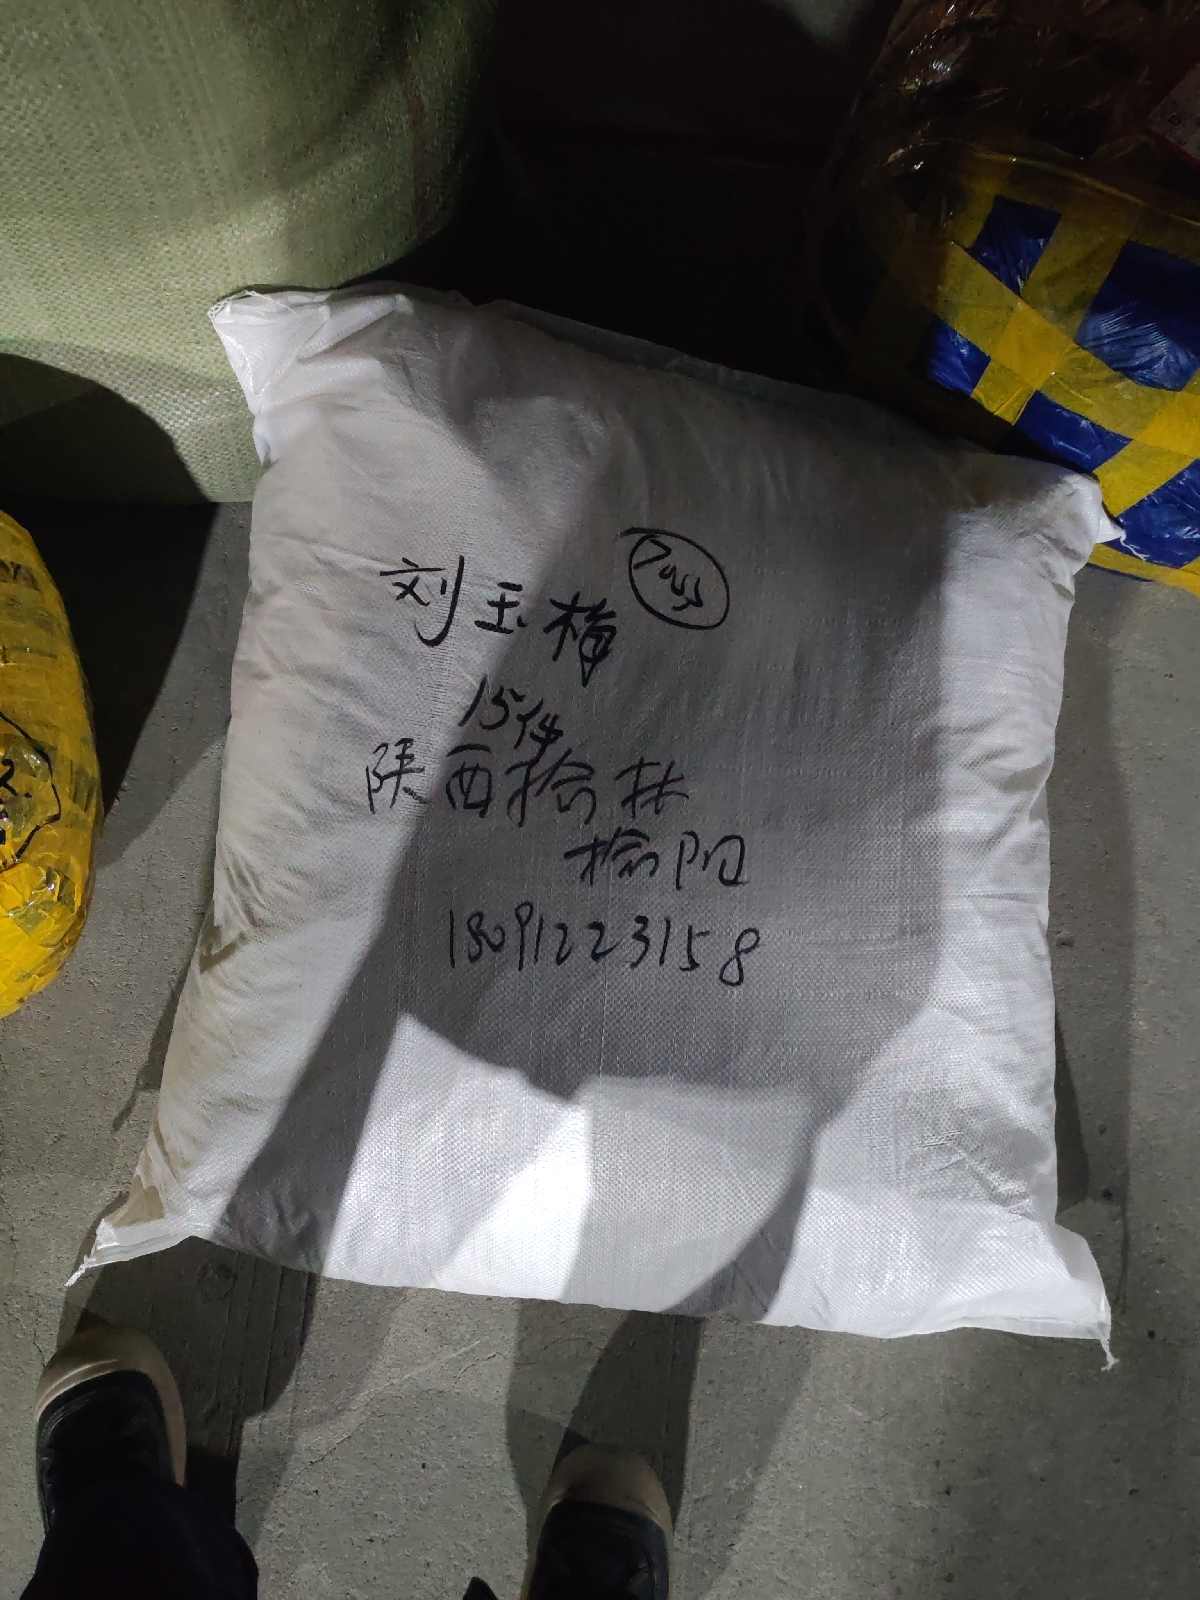 刘玉梅
15件
陕西榆林
榆阳
18091223158
2.